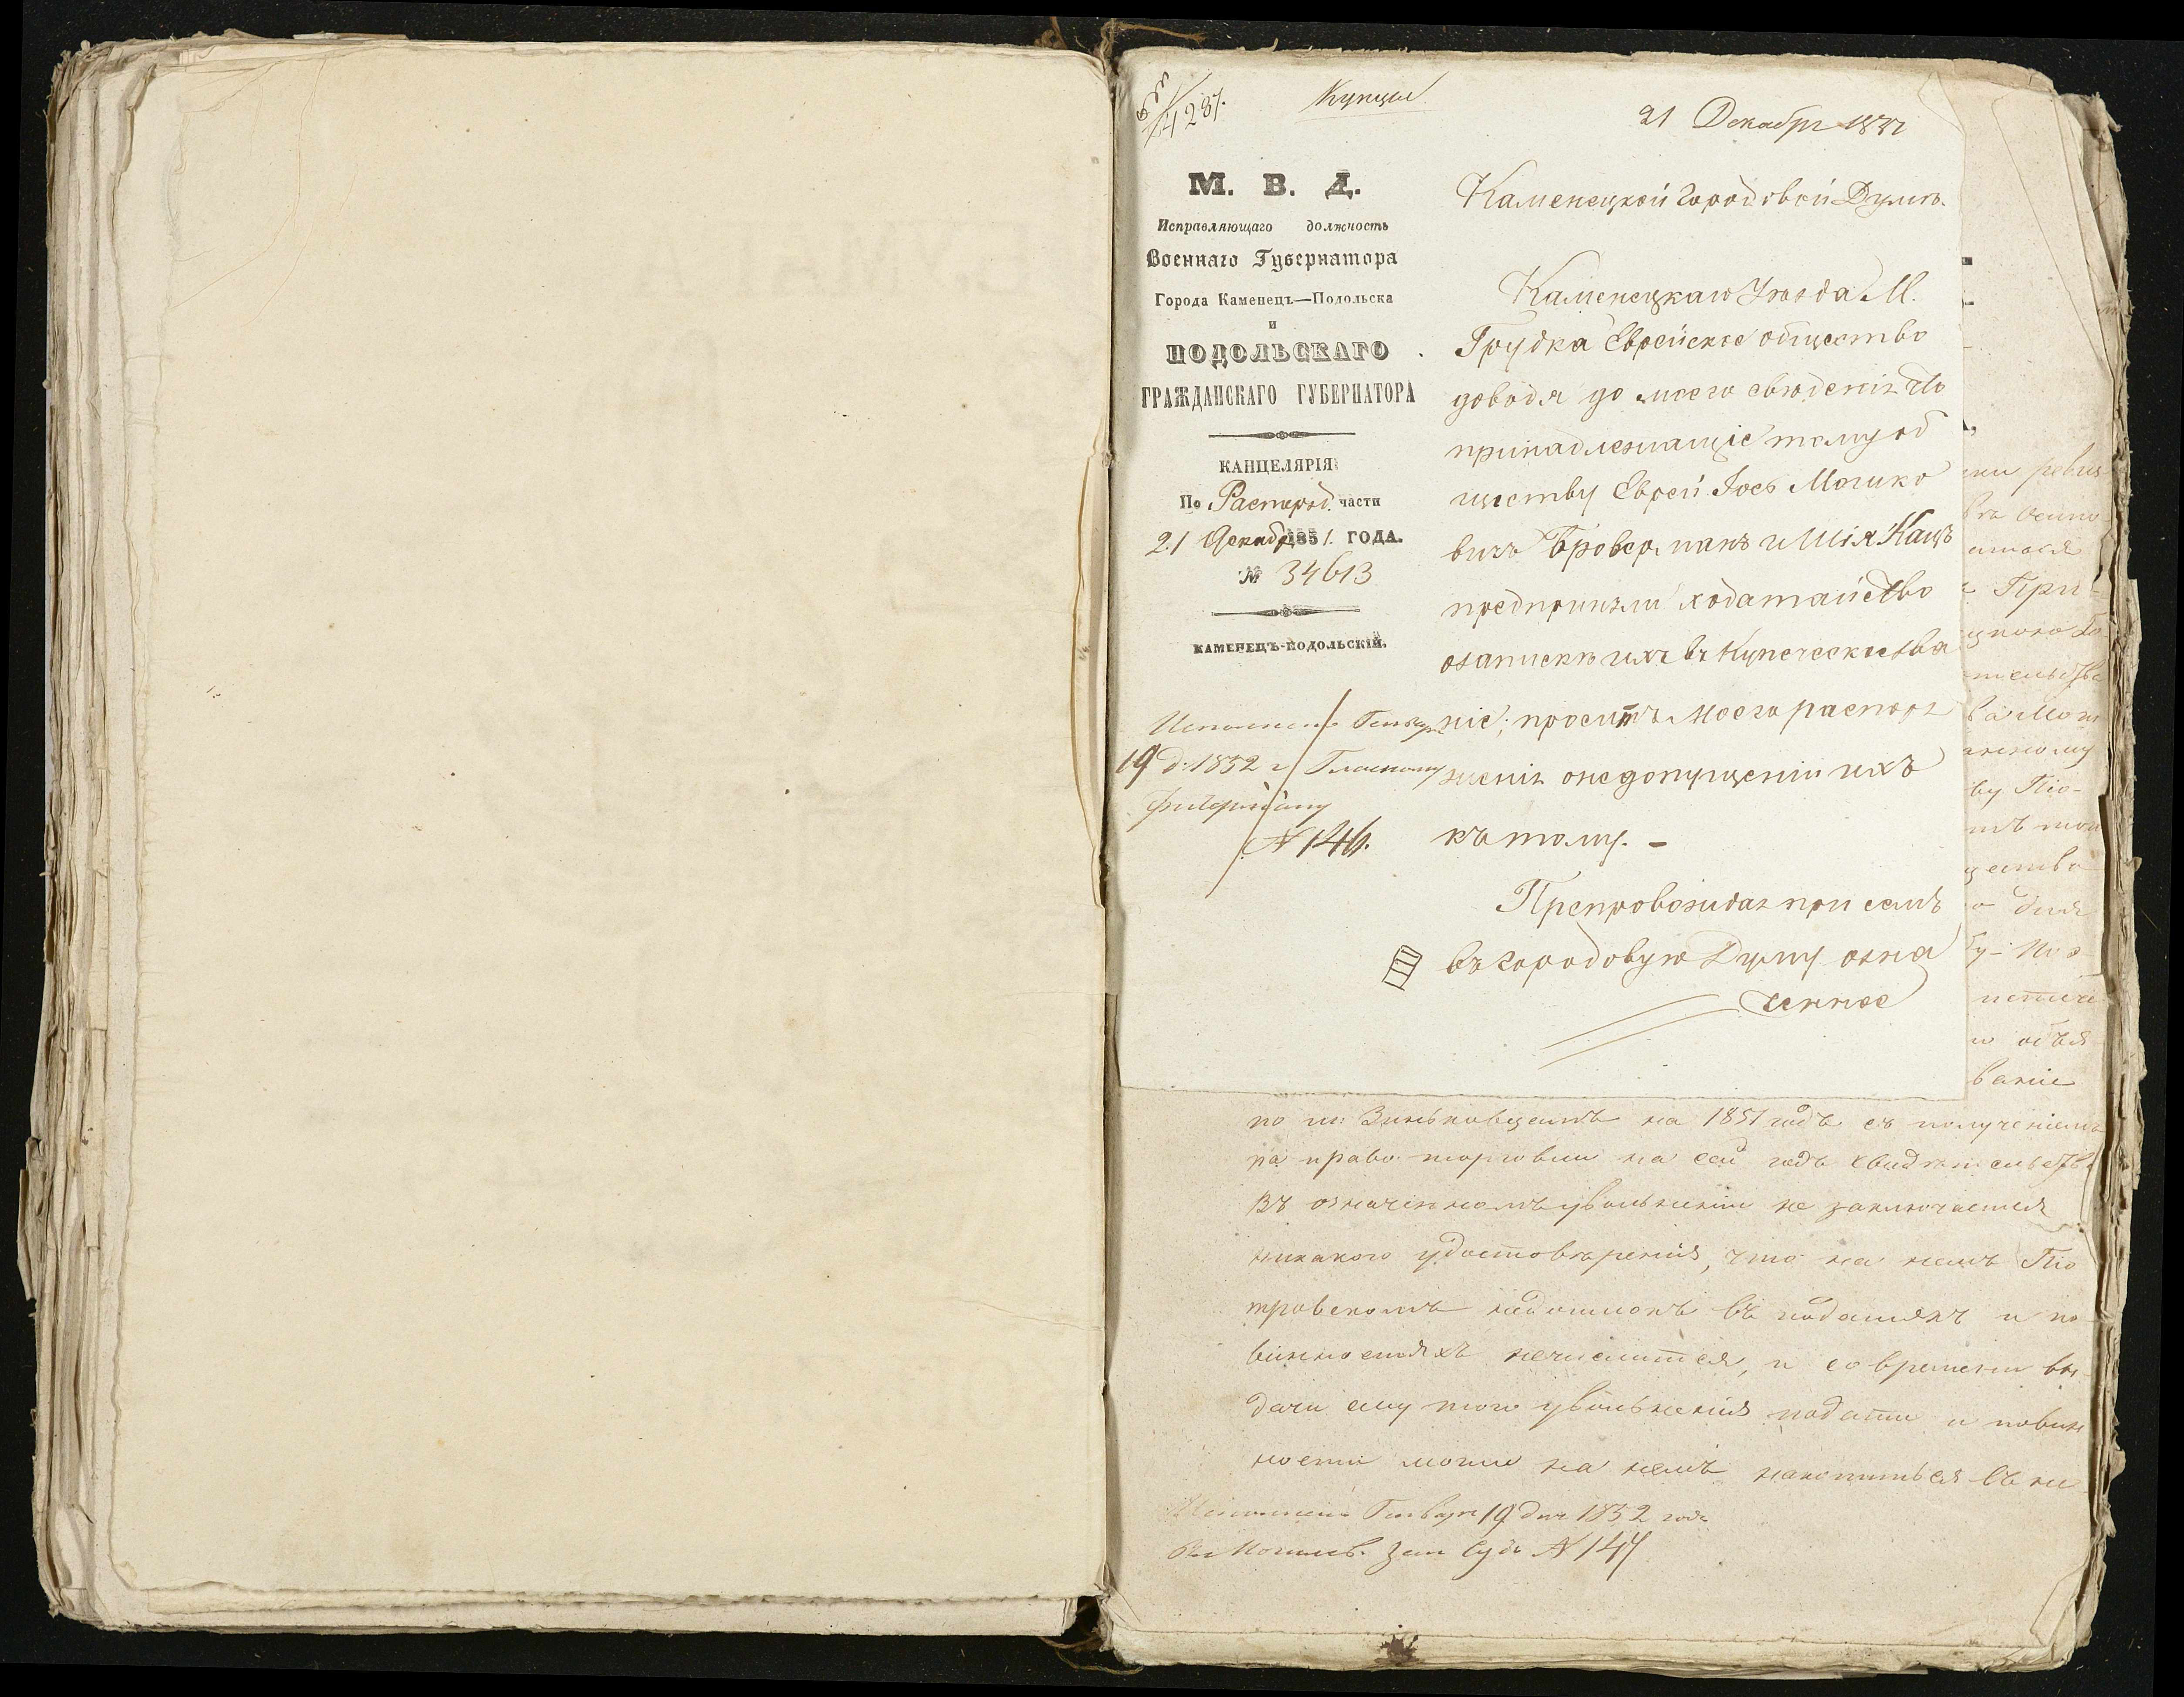 4287.
Купцы
21 Декабря 1851
М. В. Д.
Исправляющаго должность
Военнаго Губернатора
Города Каменецъ—Подольска
и
ПОДОЛЬСКАГО
ГРАЖДАНСКАГО ГУБЕРНАТОРА
КАНЦЕЛЯРІЯ
По Распоряд. части
21 Декабр 1851. ГОДА.
№ 34613
КАМЕНЕЦЪ-ПОДОЛЬСКІЙ.
Исполнено Генваря
19 д. 1852 г Гласному
№ 146.
Каменецкой Городовой Думѣ.
Каменецкаго Уѣзда М.
Грудка Еврейское общество
доводя до моего свѣденія что
принадлежащіе тому об
ществу Евреи Іось Мошко
вичъ Бровер манъ и Шія Кацъ
предприняли ходатайство
о запискѣ ихъ въ Купеческое зва
ніе, проситъ моего распоря
женія о недопущеніи ихъ
къ тому. –
Препровождая при семъ
въ Городовую Думу озна
ченное
ми ревиз
При-
тельства
ву Піо-
ществ
для
объя
ваніе
по м: Зиньковцамъ на 1851 годъ съ полученіемъ
на право торговли на сей годъ свидѣтельства
въ означенномъ увольненіи не заключается
никакого удостовѣренія, что на немъ Піо
тровскомъ недоимокъ въ податяхъ и по
винностяхъ нечислится, и со времени вы
дачи ему того увольненія подати и повин
ности могли на немъ накопиться въ не
Исполнено Генваря 19 дня 1852 года
въ Могилев. Зем Судъ № 144